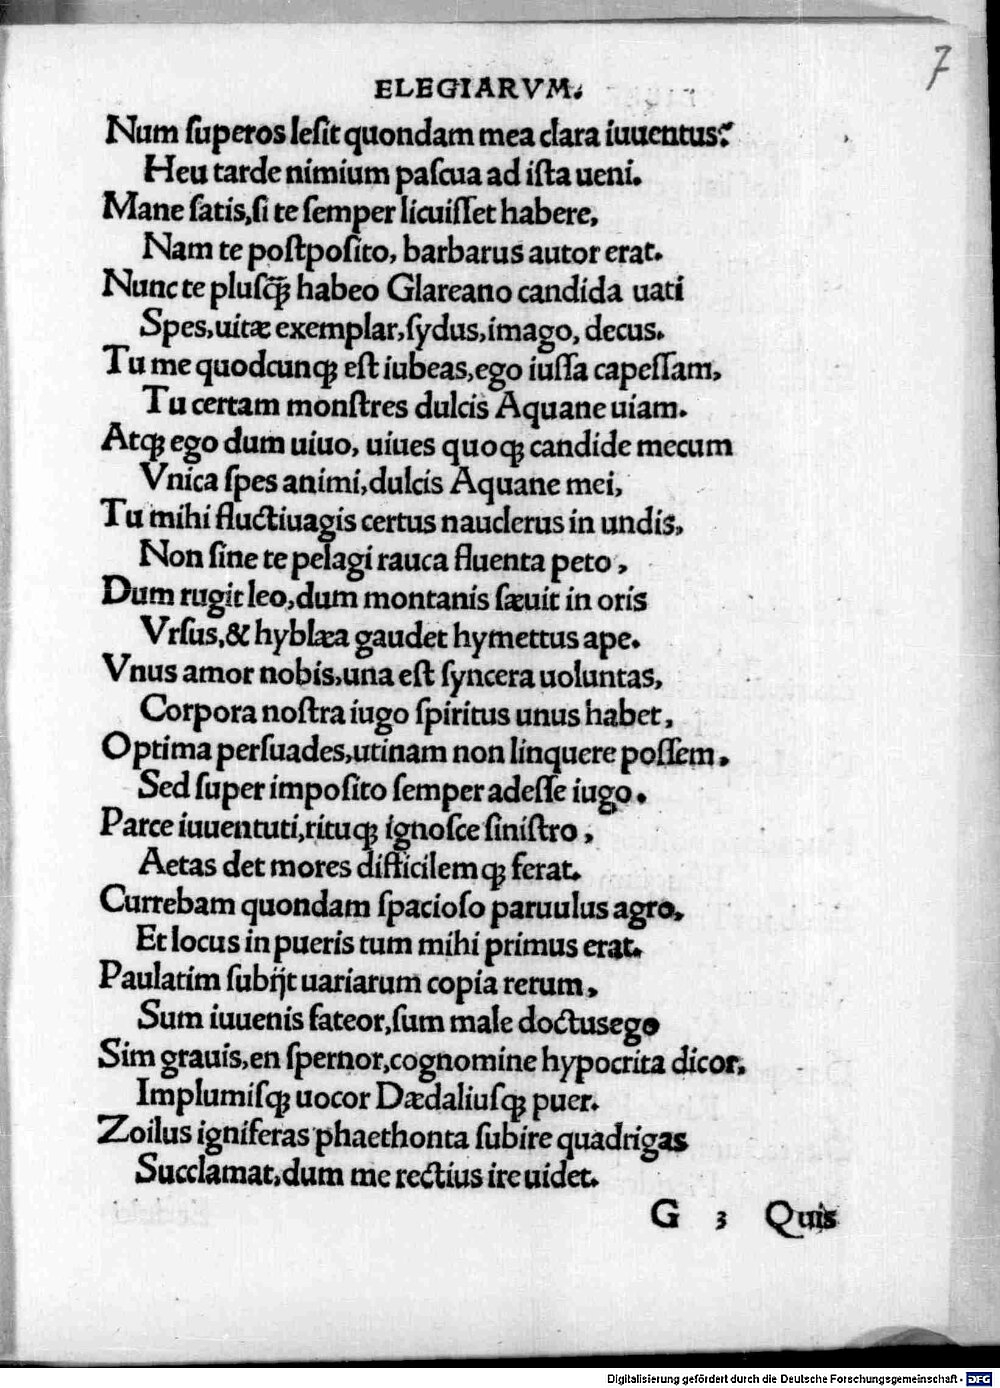 7
ELEGIARVM.
Num ſuperos leſit quondam mea clara iuuentus?
Heu tarde nimium paſcua ad iſta ueni.
Mane ſatis,ſi te ſemper licuiſſet habere,
Nam te poſtpoſito, barbarus autor erat.
Nunc te pluſꝙ̃ habeo Glareano candida uati
Spes,uitæ exemplar,ſydus,imago, decus.
Tu me quodcunqꝫ eſt iubeas,ego iuſſa capeſſam,
Tu certam monſtres dulcis Aquane uiam.
Atqꝫ ego dum uiuo, uiues quoqꝫ candide mecum
Vnica ſpes animi,dulcis Aquane mei,
Tu mihi fluctiuagis certus nauclerus in undis,
Non ſine te pelagi rauca fluenta peto,
Dum rugit leo,dum montanis ſæuit in oris
Vrſus,& hyblæa gaudet hymettus ape.
Vnus amor nobis,una eſt ſyncera uoluntas,
Corpora noſtra iugo ſpiritus unus habet,
Optima perſuades,utinam non linquere poſſem.
Sed ſuper impoſito ſemper adeſſe iugo.
Parce iuuentuti,rituqꝫ ignoſce ſiniſtro,
Aetas det mores difficilemqꝫ ferat.
Currebam quondam ſpacioſo paruulus agro,
Et locus in pueris tum mihi primus erat.
Paulatim ſubijt uariarum copia rerum,
Sum iuuenis fateor,ſum male doctus ego
Sim grauis,en ſpernor,cognomine hypocrita dicor,
Implumiſqꝫ uocor Dædaliuſqꝫ puer.
Zoilus igniferas phaethonta ſubire quadrigas
Succlamat,dum me rectius ire uidet.
G 3 Quis
Digitalisierung gefördert durch die Deutsche Forschungsgemeinschaft - DFG